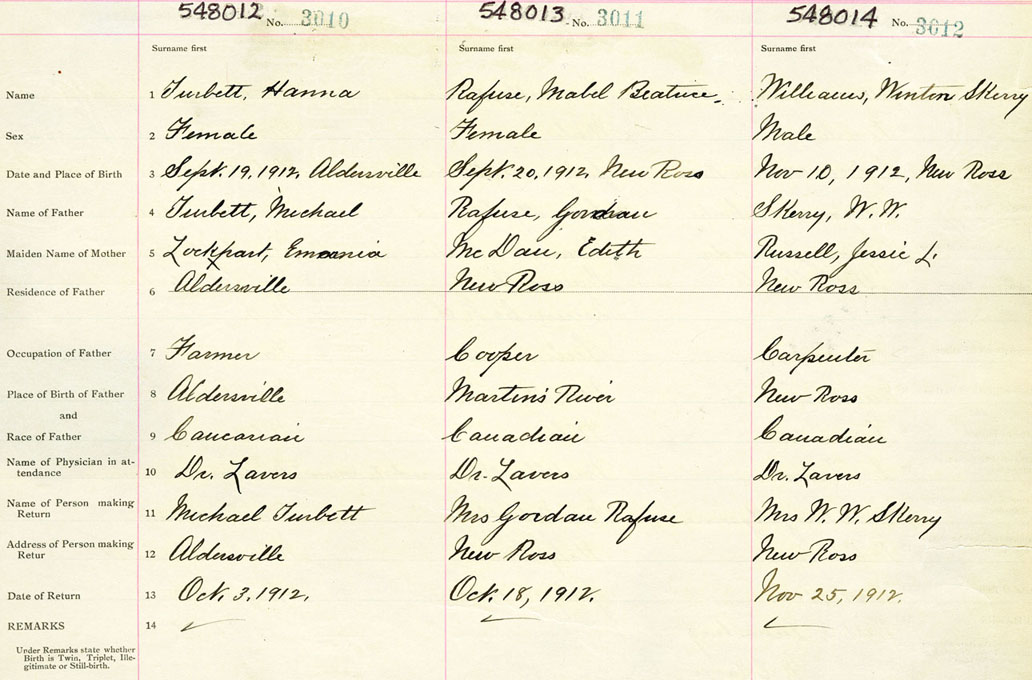 548012 No. 3010 548013 No. 3011 548014 No. 3012
Surname first Surname first Surname first
Name 1 Turbett, Hanna Rafuse, Mabel Beatrice. Williams, Winton Skerry
Sex 2 Female Female Male
Date and Place of Birth 3 Sept. 19, 1912, Aldersville Sept. 20, 1912, New Ross Nov 10, 1912, New Ross
Name of Father 4 Turbett, Michael Rafuse, Gordau Skerry, W. W.
Maiden Name of Mother 5 Lockhart, Edith Russell, Jessie L.
Residence of Father 6 Aldersville New Ross New Ross
Occupation of Father 7 Farmer Cooper Carpenter
Place of Birth of Father 8 Aldersville Martin's River New Ross
and
Race of Father 9 Caucasian Canadian Canadian
Name of Physician in at-
tendance 10 Dr. Lavers Dr. Lavers Dr. Lavers
Name of Person making
Return 11 Michael Turbett Mrs Gordau Rafuse Mrs W. W. Skerry
Address of Person making
Retur 12 Aldersville New Ross New Ross
Date of Return 13 Oct. 3, 1912. Oct. 18, 1912. Nov 25, 1912.
REMARKS 14
Under Remarks state whether
Birth is Twin, Triplet, Ille-
gitimate or Still-birth.